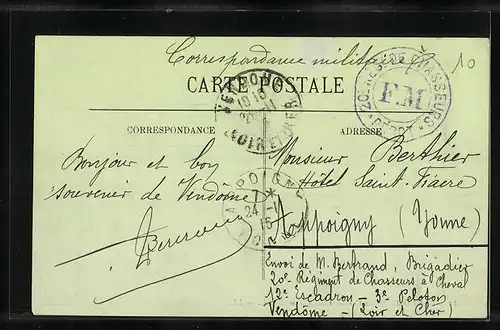 Correspondance militaire
10
CARTE POSTALE
20e RÉGt DE CHASSEURS
F.M
DÉPÔT
VENDÔME
LOIR-ET-CHER
CORRESPONDANCE
ADRESSE
Bonjour et bon
souvenir de Vendôme
Monsieur Berthier
Hôtel Saint-Fiacre
Appoigny (Yonne)
APPOIGNY
24 -1
Envoi de M. Bertrand, Brigadier
20e Régiment de Chasseurs à Cheval
12e Escadron - 3e Peloton
Vendôme - (Loir et Cher)